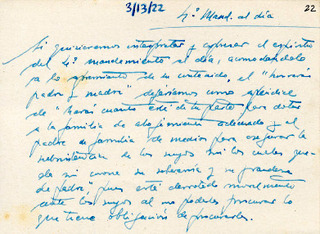 3/13/22
4º Mand. al día
22
Si quisiéramos interpretar y expresar el espíritu
del 4º mandamiento al día, acomodándolo
ya lo de su contenido, el "honrarás
padre y madre" deberíamos como
de "harás cuanto esté de tu parte para dotar
a la familia de alojamiento adecuado y al
padre de familia de medios para asegurar la
subsistencia de los suyos sin los cuales que-
da sin corona su soberanía y su grandeza
de padre", pues está derrotado moralmente
ante los suyos al no poderles procurar lo
que tiene obligación de procurarles.